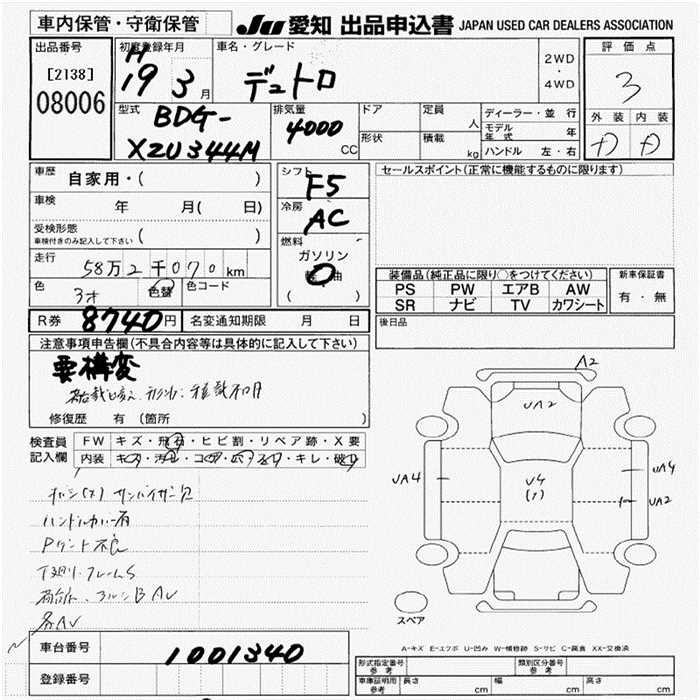 車内保管・守衛保管
JU 愛知 出品申込書 JAPAN USED CAR DEALERS ASSOCIATION
出品番号
[2138]
08006
初度登録年月
H
19 3月
車名・グレード
デュトロ
2WD
・
4WD
評価点
3
外装 内装
D D
型式
BDG-
XZU344M
排気量
4000
CC
ドア
形状
定員
人
積載
kg
ディーラー・並行
モデル年式 年
ハンドル 左・右
車歴
自家用・( )
車検
年 月( 日)
受検形態
車検付きのみ記入して下さい ( )
走行
58万2千070km
色
色替
色コード
シフト
F5
冷房
AC
燃料
ガソリン
軽油
( )
セールスポイント(正常に機能するものに限ります)
装備品(純正品に限り○をつけてください)
PS PW エアB AW
SR ナビ TV カワシート
新車保証書
有・無
R券 8740円 名変通知期限 月 日
後日品
注意事項申告欄(不具合内容等は具体的に記入して下さい)
要構変
修復歴 有(箇所 )
検査員
記入欄
FW キズ・飛石・ヒビ割・リペア跡・X要
内装
サンバイザー欠
ハンドルカバー有
Pゲート不良
下廻り・フレームS
各AU
A2
UA2
UA4
U4
(1)
UA4
UA2
スペア
A-キズ E-エクボ U-凹み W-補修跡 S-サビ C-腐食 XX-交換済
車台番号
1001340
登録番号
型式指定番号
参考
類別区分番号
参考
車庫証明用
参考
長さ cm 幅 cm 高さ cm